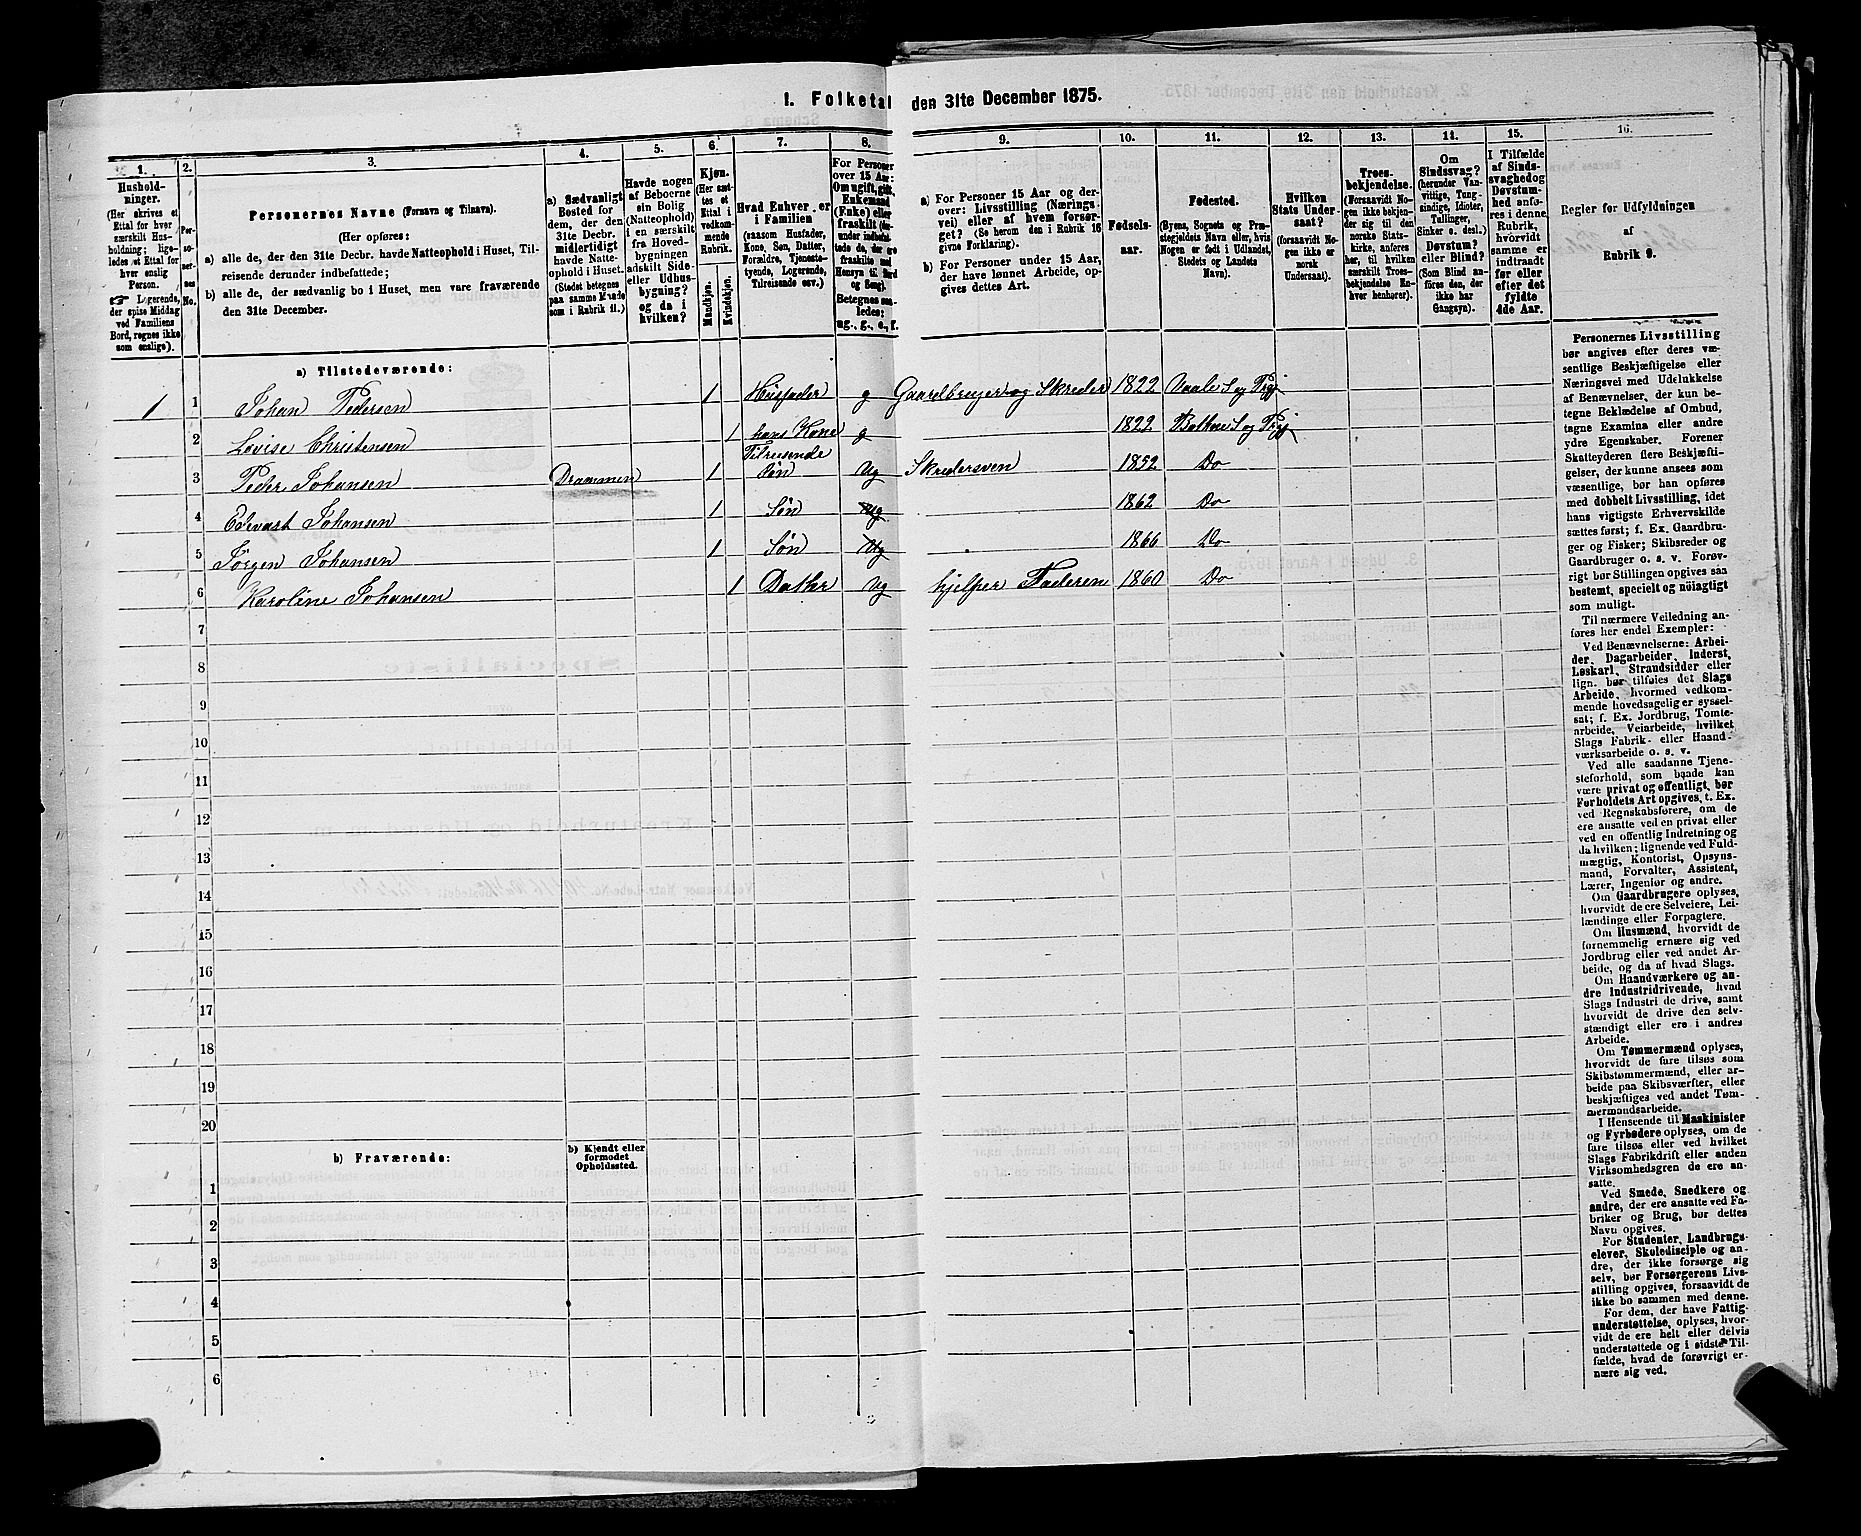 1. Folketal den 31te December 1875.
1.
Hushold-
ninger.
(Her skrives et
Ettal for hver
særskilt Hus-
holdning; lige-
ledes et Ettal for
hver enslig
Person.
☞ Logerende,
der spise Middag
ved Familiens
Bord, regnes ikke
som enslige).
2.
Per-
soner-
nes
No.
3.
Personernes Navne (Fornavn og Tilnavn).
(Her opføres:
a) alle de, der den 31te Decbr. havde Natteophold i Huset, Til-
reisende derunder indbefattede;
b) alle de, der sædvanlig bo i Huset, men vare fraværende
den 31te December.
4.
a) Sædvanligt
Bosted for
dem, der den
31te Decbr.
midlertidigt
havde Natte-
ophold i Huset.
(Stedet betegnes
paa samme Maade
som i Rubrik 11.)
5.
Havde nogen
af Beboerne
sin Bolig
(Natteophold)
i en særskilt
fra Hoved-
bygningen
adskilt Side-
eller Udhus-
bygning?
og da i
hvilken?
6.
Kjøn.
(Her sæt-
tes et
Ettal i
vedkom-
mende
Rubrik.
Mandkjøn.
Kvindekjøn.
7.
Hvad Enhver er
i Familien
(saasom Husfader,
Kone, Søn, Datter,
Forældre, Tjeneste-
tyende, Logerende,
Tilreisende osv.)
8.
For Personer
over 15 Aar:
Om ugift, gift,
Enkemand
(Enke) eller
fraskilt
Betegnes saa-
ledes:
ug., g., e., f.
9.
a) For Personer 15 Aar og der-
over: Livsstilling (Nærings-
vei) eller af hvem forsør-
get? (Se herom den i Rubrik 16
givne Forklaring).
b) For Personer under 15 Aar,
der have lønnet Arbeide, op-
gives dettes Art.
10.
Fødsels-
aar.
11.
Fødested.
(Byens, Sognets og Præ-
stegjeldets Navn eller, hvis
Nogen er født i Udlandet,
Stedets og Landets
Navn).
12.
Hvilken
Stats Under-
saat?
(forsaavidt No-
gen ikke er
norsk
Undersaat).
13.
Troes-
bekjendelse.
(Forsaavidt No-
gen ikke bekjen-
der sig til den
norske Stats-
kirke, anføres
her, til hvilken
særskilt Troes-
bekjendelse En-
hver henhører).
14.
Om
Sindssvag?
(herunder Van-
vittige, Tung-
sindige, Idioter,
Tullinger,
Sinker o. desl.)
Døvstum?
eller Blind?
(Som Blind an-
føres den, der
ikke har
Gangsyn).
15.
I Tilfælde
af Sinds-
svaghed og
Døvstum-
hed anfø-
res i denne
Rubrik,
hvorvidt
samme er
indtraadt
før eller
efter det
fyldte
4de Aar.
16.
Regler for Udfyldningen
af
Rubrik 9.
a) Tilstedeværende:
1 1 Johan Pedersen 1 Husfader g Gaardbruger og Skreder 1822 Vaale S og Prgj
2 Lovise Christensen 1 hans Kone g 1822 Bothne S og Prgj
3 Peder Johansen Drammen 1 Tilreisende Søn ug Skredersven 1852 Do
4 Edvart Johansen 1 Søn ug 1862 Do
5 Jørgen Johansen 1 Søn ug 1866 Do
6 Karoline Johansen 1 Datter ug hjelper Faderen 1860 Do
7
8
9
10
11
12
13
14
15
16
17
18
19
20
b) Fraværende:
b) Kjendt eller
formodet
Opholdssted.
1
2
3
4
5
6
Personernes Livsstilling
bør angives efter deres væ-
sentlige Beskjæftigelse eller
Næringsvei med Udelukkelse
af Benævnelser, der kun be-
tegne Beklædelse af Ombud,
tagne Examina eller andre
ydre Egenskaber. Forener
Skatteyderen flere Beskjæfti-
gelser, der kunne ansees som
væsentlige, bør han opføres
med dobbelt Livsstilling, idet
hans vigtigste Erhvervskilde
sættes først; f. Ex. Gaardbru-
ger og Fisker; Skibsreder og
Gaardbruger o. s. v. Forøv-
rigt bør Stillingen opgives saa
bestemt, specielt og nøiagtigt
som muligt.
Til nærmere Veiledning an-
føres her endel Exempler:
Ved Benævnelserne: Arbei-
der, Dagarbeider, Inderst,
Løskarl, Strandsidder eller
lign. bør tilføies det Slags
Arbeide, hvormed vedkom-
mende hovedsagelig er syssel-
sat; f. Ex. Jordbrug, Tomte-
arbeide, Veiarbeide, hvilket
Slags Fabrik- eller Haand-
værksarbeide o. s. v.
Ved alle saadanne Tjene-
steforhold, som baade kan
være privat og offentligt, bør
Forholdets Art opgives, t. Ex.
ved Regnskabsførere, om de
ere ansatte ved en privat eller
ved en offentlig Indretning og
da hvilken; lignende ved Fuld-
mægtig, Kontorist, Opsyns-
mand, Forvalter, Assistent,
Lærer, Ingeniør og andre.
Om Gaardbrugere oplyses,
hvorvidt de ere Selveiere, Lei-
lændinge eller Forpagtere.
Om Husmænd, hvorvidt de
fornemmelig ernære sig ved
Jordbrug eller ved andet Ar-
beide, og da af hvad Slags.
Om Haandværkere og an-
dre Industridrivende, hvad
Slags Industri de drive, samt
hvorvidt de drive den selv-
stændigt eller ere i andres
Arbeide.
Om Tømmermænd oplyses,
hvorvidt de fare tilsøs som
Skibstømmermænd, eller ar-
beide paa Skibsværfter, eller
beskjæftiges ved andet Tøm-
mermandsarbeide.
I Henseende til Maskinister
og Fyrbødere oplyses, om de
fare tilsøs eller ved hvilket
Slags Fabrikdrift eller anden
Virksomhedsgren de ere an-
satte.
Ved Smede, Snedkere og
andre, der ere ansatte ved Fa-
briker og Brug, bør dettes
Navn opgives.
For Studenter, Landbrugs-
elever, Skoledisciple og an-
dre, der ikke forsørge sig
selv, bør Forsørgerens Livs-
stilling opgives, forsaavidt de
ikke bo sammen med denne.
For dem, der have Fattig-
understøttelse, oplyses, hvor-
vidt de ere helt eller delvis
understøttede og i sidste Til-
fælde, hvad de forøvrigt er-
nære sig ved.